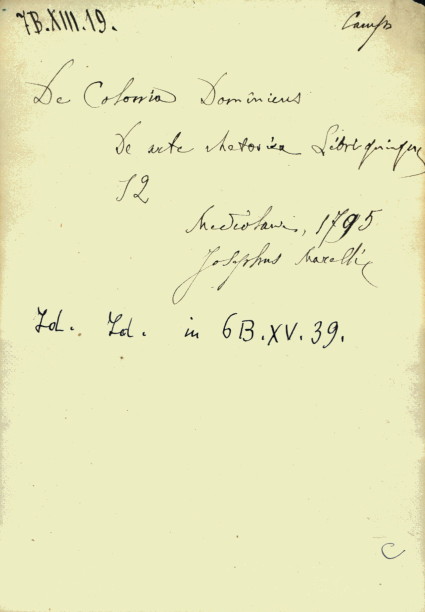 7B.XIII.19.
Camp
De Colonia Dominicus
De arte rhetorica Libri quinque
12
Mediolani, 1795
Josephus Marelli
Id. Id. in 6B.XV.39.
C